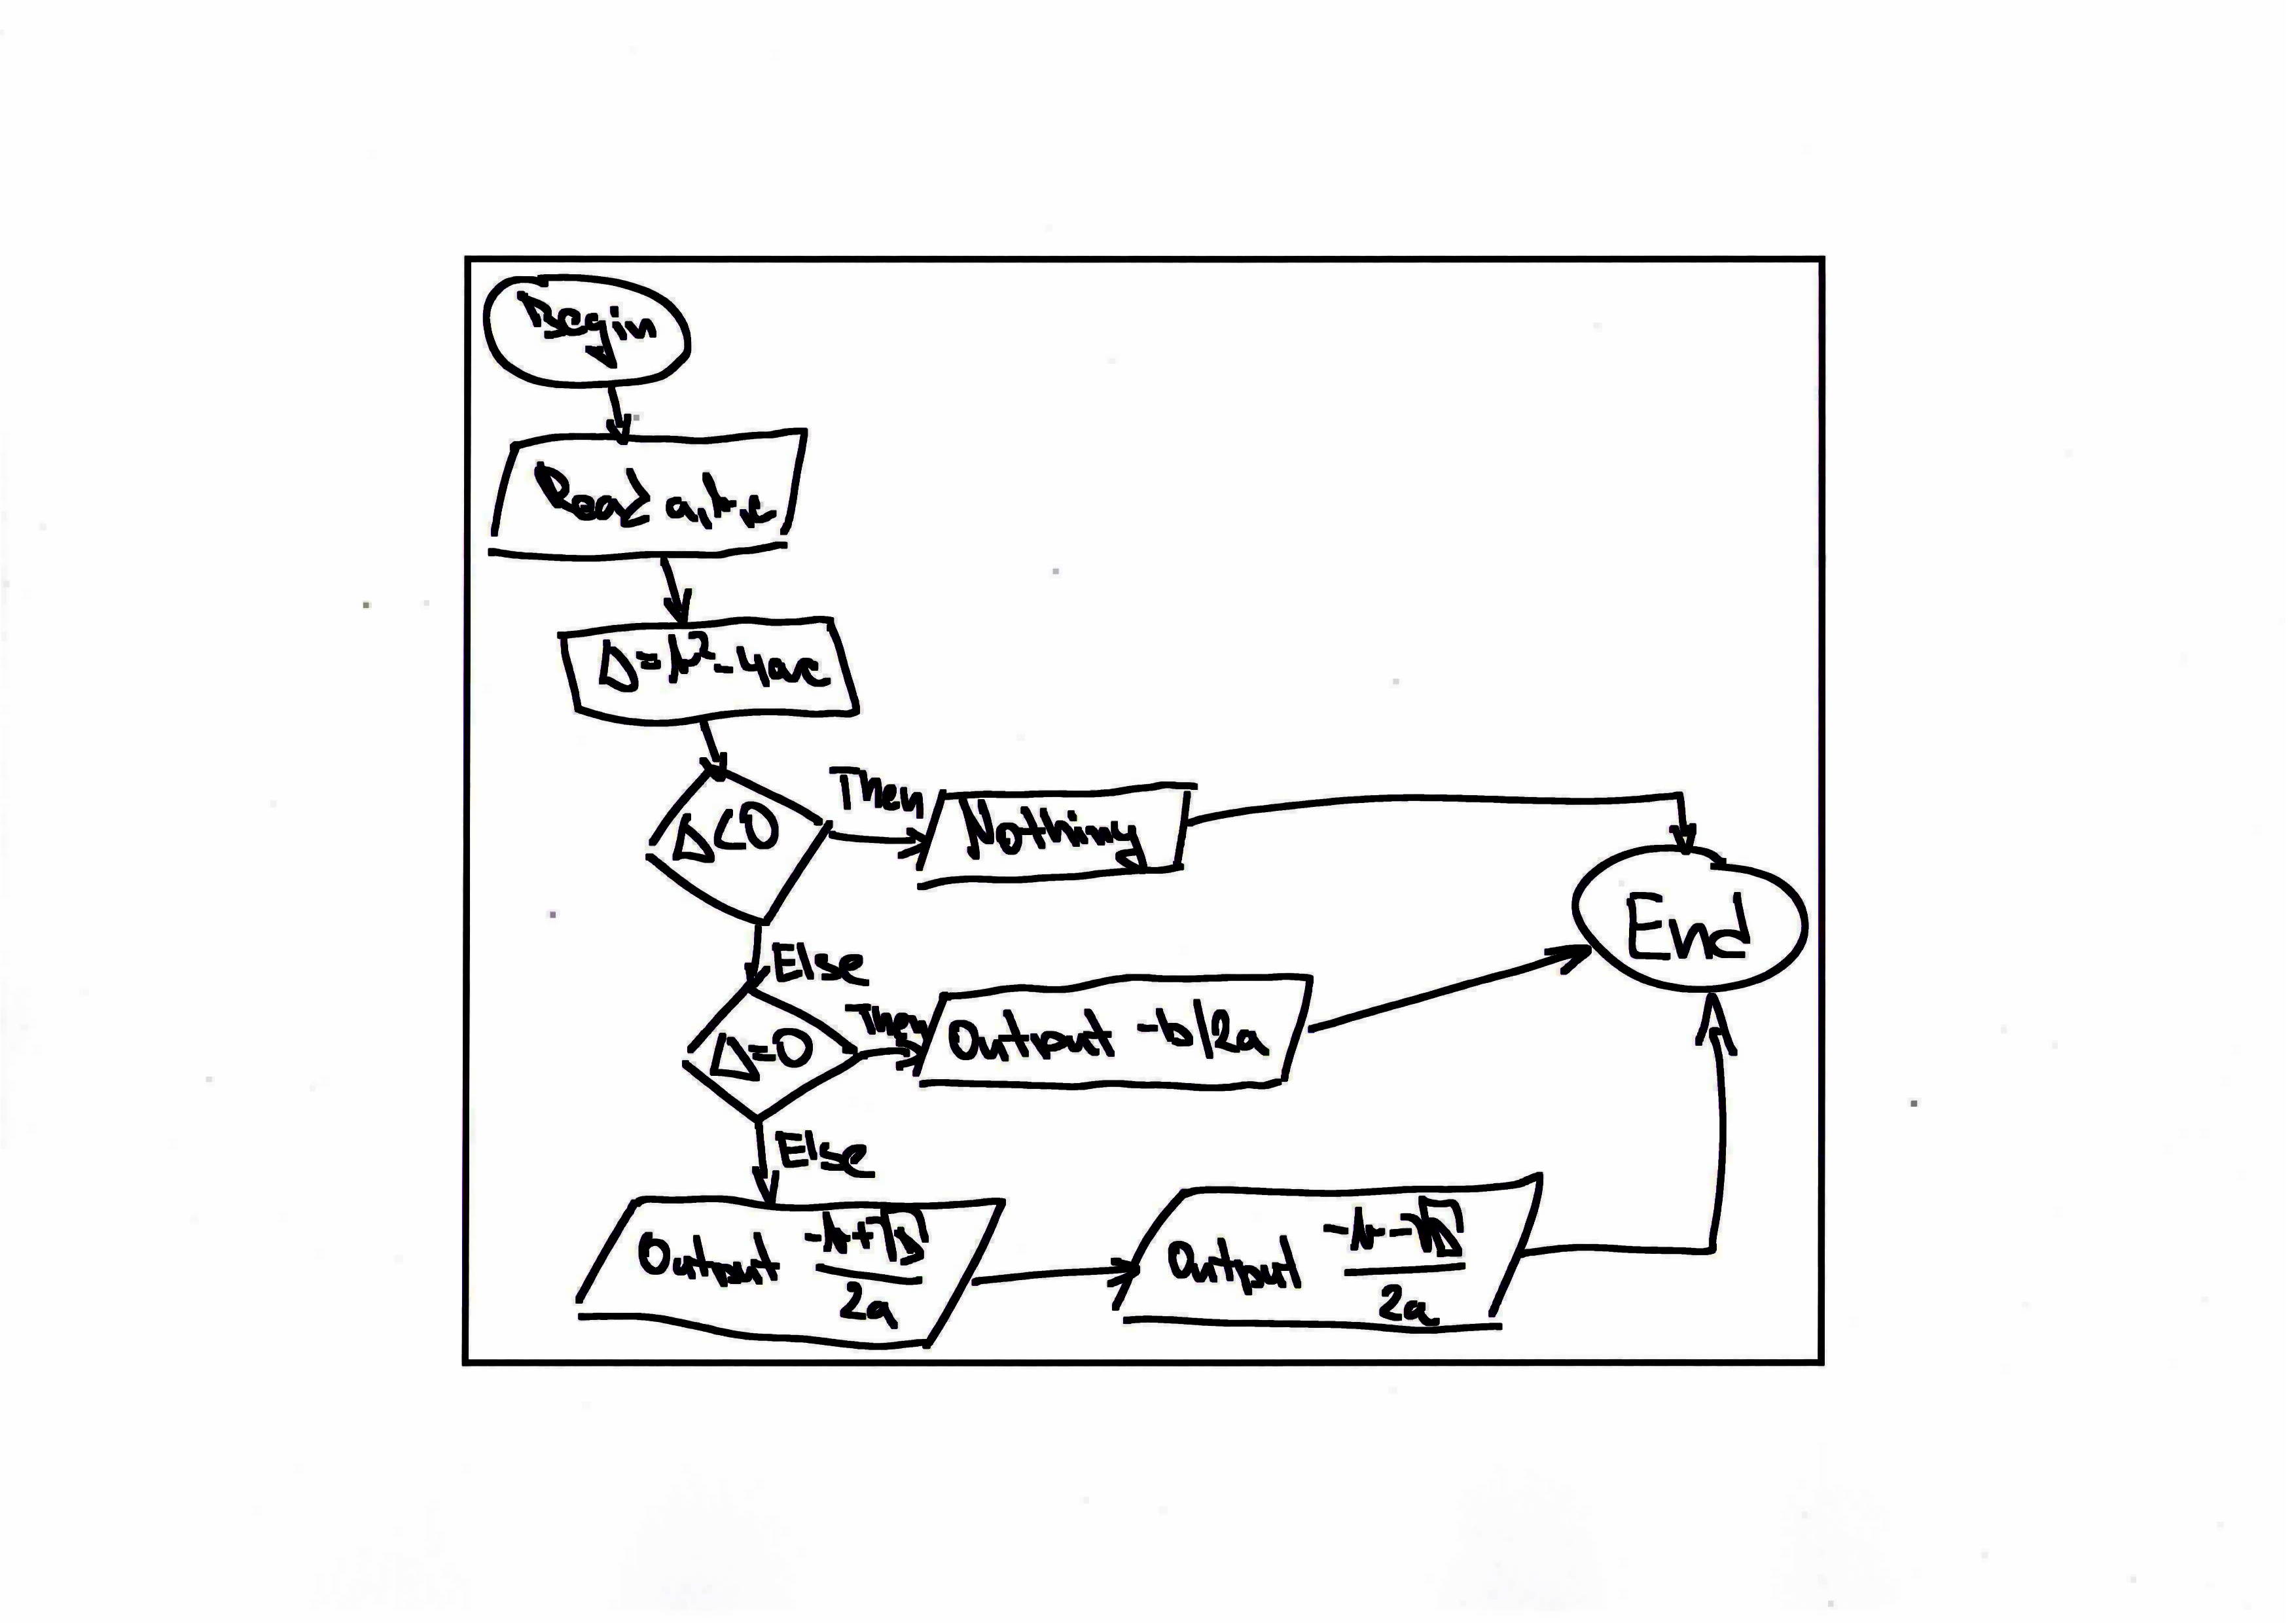 Begin
Read a,b,c
Δ=b²-4ac
Δ<0
Then
Nothing
End
Else
Δ=0
Then
Output -b/2a
Else
Output (-b+√Δ)/2a
Output (-b-√Δ)/2a